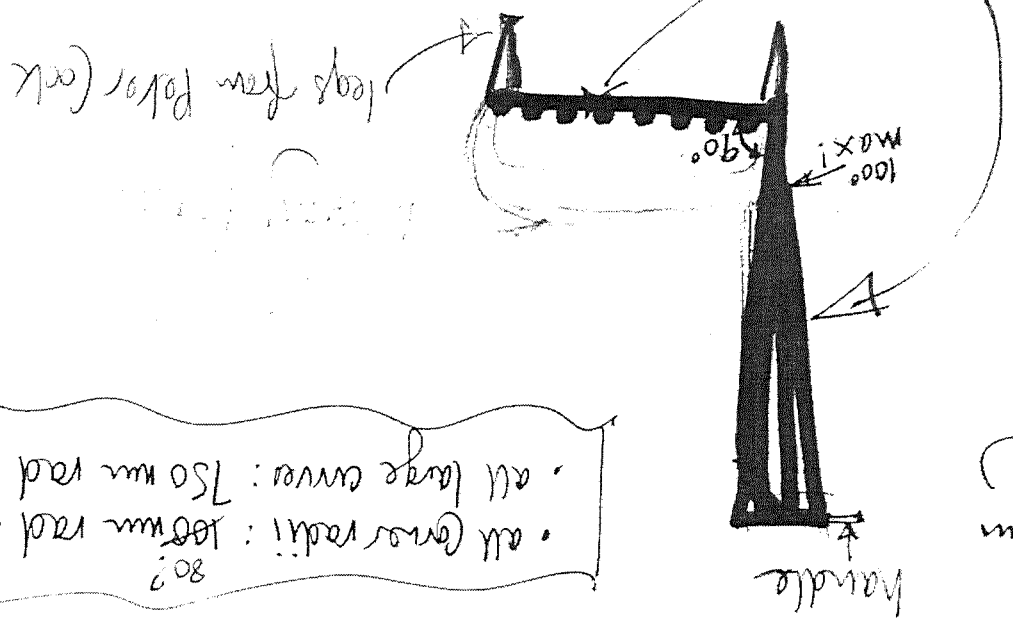 handle
80?
• all corner radii : 100 mm rad
• all large curves : 750 mm rad
100°
max!
90°
legs from